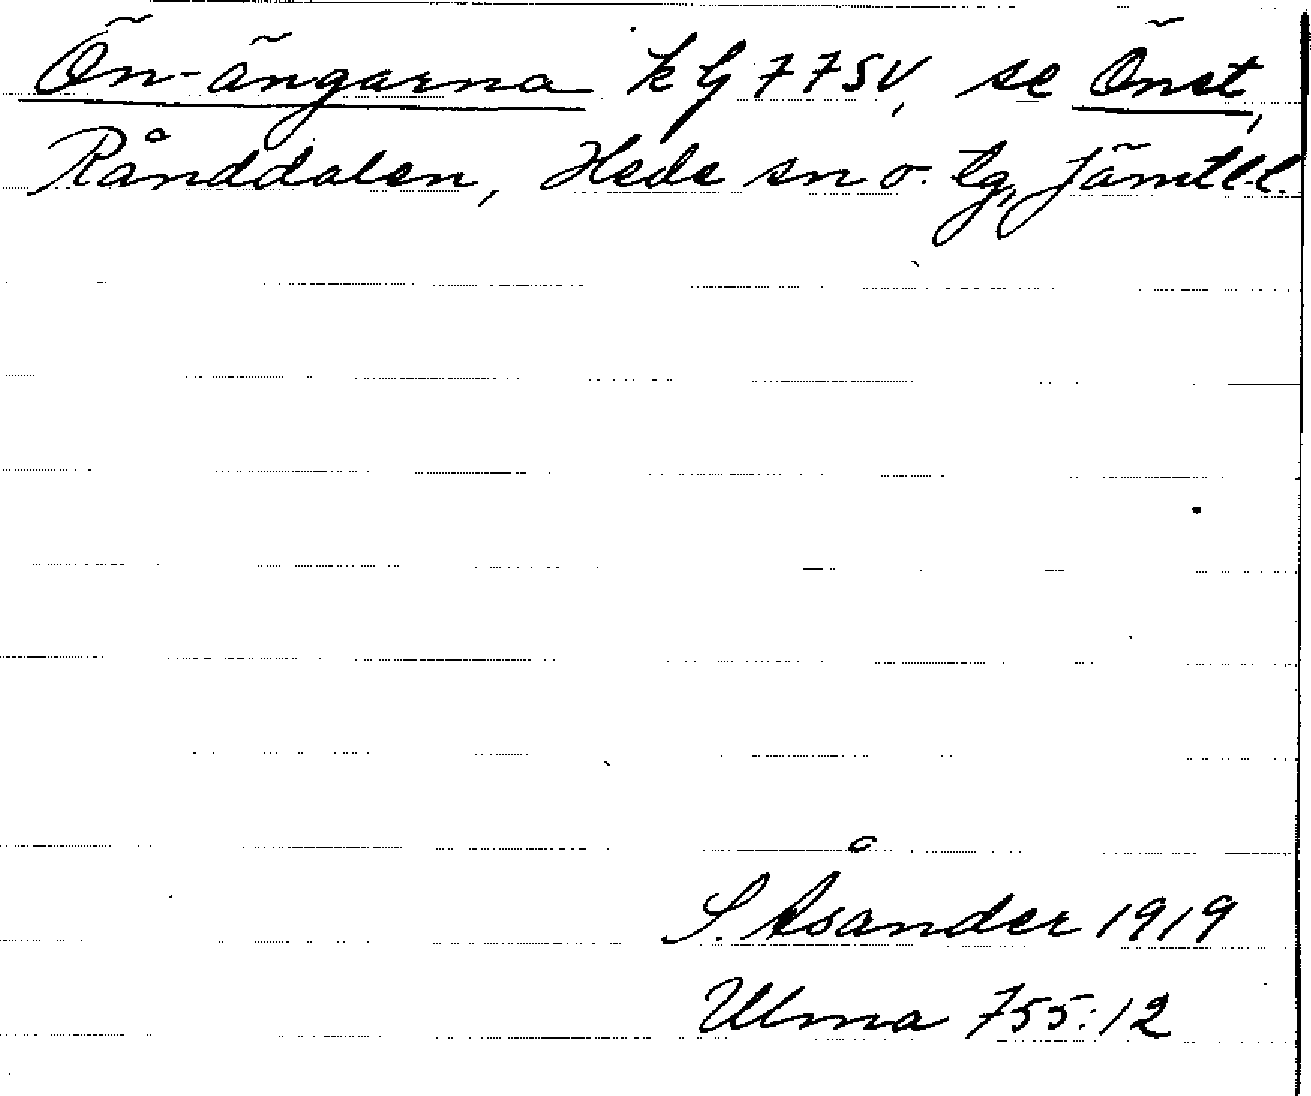 Ön-ängarna kG 77SV, se Önet,
Rånddalen, Hede sn o. tg, Jämtl.l.
S. Åsander 1919
Ulma 755:12